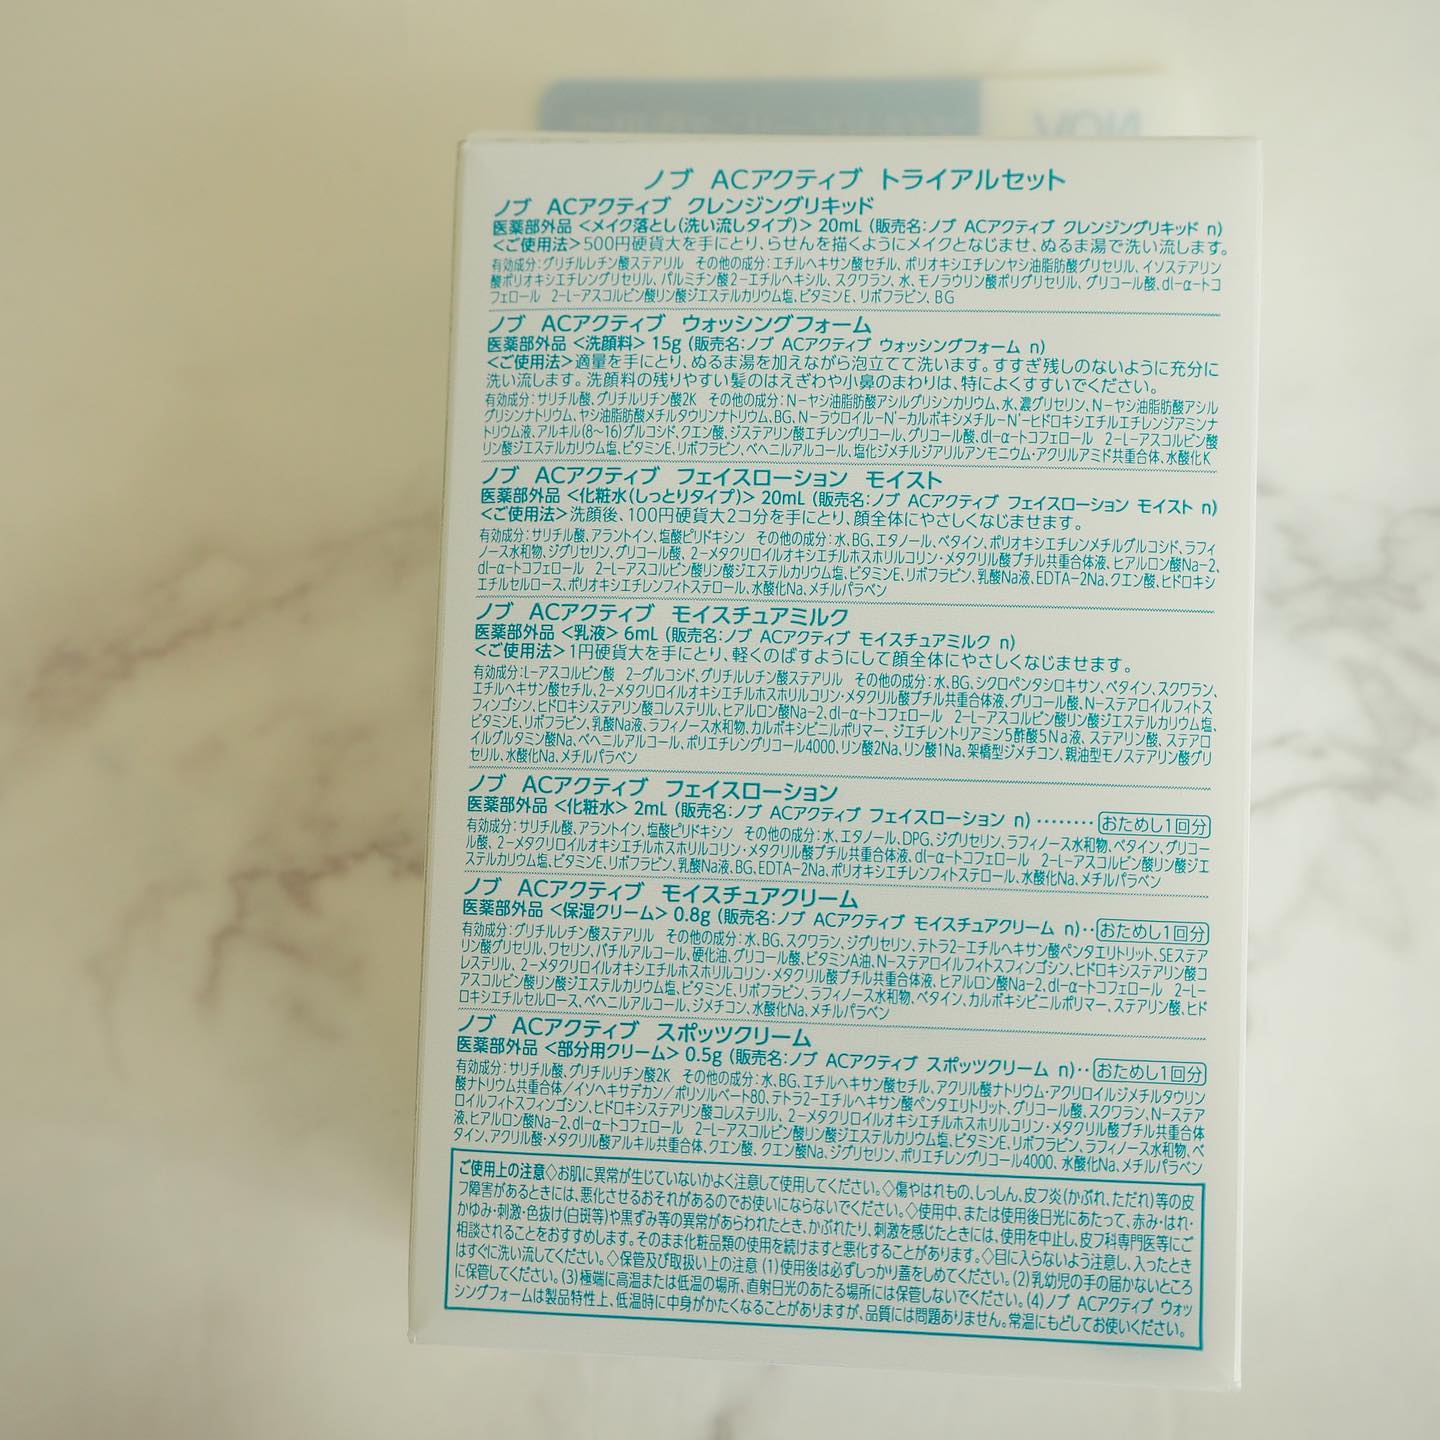 NOV
ノブ ACアクティブ トライアルセット
ノブ ACアクティブ クレンジングリキッド
医薬部外品 <メイク落とし(洗い流しタイプ)> 20mL (販売名:ノブ ACアクティブ クレンジングリキッド n)
<ご使用法>500円硬貨大を手にとり、らせんを描くようにメイクとなじませ、ぬるま湯で洗い流します。
有効成分:グリチルレチン酸ステアリル その他の成分:エチルヘキサン酸セチル、ポリオキシエチレンヤシ油脂肪酸グリセリル、イソステアリン
酸ポリオキシエチレングリセリル、パルミチン酸2-エチルヘキシル、スクワラン、水、モノラウリン酸ポリグリセリル、グリコール酸、dl-α-トコ
フェロール 2-L-アスコルビン酸リン酸ジエステルカリウム塩、ビタミンE、リボフラビン、BG
ノブ ACアクティブ ウォッシングフォーム
医薬部外品 <洗顔料> 15g (販売名:ノブ ACアクティブ ウォッシングフォーム n)
<ご使用法>適量を手にとり、ぬるま湯を加えながら泡立てて洗います。すすぎ残しのないように充分に
洗い流します。洗顔料の残りやすい髪のはえぎわや小鼻のまわりは、特によくすすいでください。
有効成分:サリチル酸、グリチルリチン酸2K その他の成分:N-ヤシ油脂肪酸アシルグリシンカリウム、水、濃グリセリン、N-ヤシ油脂肪酸アシル
グリシンナトリウム、ヤシ油脂肪酸メチルタウリンナトリウム、BG、N-ラウロイル-N'-カルボキシメチル-N'-ヒドロキシエチルエチレンジアミンナ
トリウム液、アルキル(8~16)グルコシド、クエン酸、ジステアリン酸エチレングリコール、グリコール酸、dl-α-トコフェロール 2-L-アスコルビン酸
リン酸ジエステルカリウム塩、ビタミンE、リボフラビン、ベヘニルアルコール、塩化ジメチルジアリルアンモニウム・アクリルアミド共重合体、水酸化K
ノブ ACアクティブ フェイスローション モイスト
医薬部外品 <化粧水(しっとりタイプ)> 20mL (販売名:ノブ ACアクティブ フェイスローション モイスト n)
<ご使用法>洗顔後、100円硬貨大2コ分を手にとり、顔全体にやさしくなじませます。
有効成分:サリチル酸、アラントイン、塩酸ピリドキシン その他の成分:水、BG、エタノール、ベタイン、ポリオキシエチレンメチルグルコシド、ラフィ
ノース水和物、ジグリセリン、グリコール酸、2-メタクリロイルオキシエチルホスホリルコリン・メタクリル酸ブチル共重合体液、ヒアルロン酸Na-2、
dl-α-トコフェロール 2-L-アスコルビン酸リン酸ジエステルカリウム塩、ビタミンE、リボフラビン、乳酸Na液、EDTA-2Na、クエン酸、ヒドロキシ
エチルセルロース、ポリオキシエチレンフィトステロール、水酸化Na、メチルパラベン
ノブ ACアクティブ モイスチュアミルク
医薬部外品 <乳液> 6mL (販売名:ノブ ACアクティブ モイスチュアミルク n)
<ご使用法>1円硬貨大を手にとり、軽くのばすようにして顔全体にやさしくなじませます。
有効成分:L-アスコルビン酸 2-グルコシド、グリチルレチン酸ステアリル その他の成分:水、BG、シクロペンタシロキサン、ベタイン、スクワラン、
エチルヘキサン酸セチル、2-メタクリロイルオキシエチルホスホリルコリン・メタクリル酸ブチル共重合体液、グリコール酸、N-ステアロイルフィトス
フィンゴシン、ヒドロキシステアリン酸コレステリル、ヒアルロン酸Na-2、dl-α-トコフェロール 2-L-アスコルビン酸リン酸ジエステルカリウム塩、
ビタミンE、リボフラビン、乳酸Na液、ラフィノース水和物、カルボキシビニルポリマー、ジエチレントリアミン5酢酸5Na液、ステアリン酸、ステアロ
イルグルタミン酸Na、ベヘニルアルコール、ポリエチレングリコール4000、リン酸2Na、リン酸1Na、架橋型ジメチコン、親油型モノステアリン酸グリ
セリル、水酸化Na、メチルパラベン
ノブ ACアクティブ フェイスローション
医薬部外品 <化粧水> 2mL (販売名:ノブ ACアクティブ フェイスローション n) ‥‥‥‥ おためし1回分
有効成分:サリチル酸、アラントイン、塩酸ピリドキシン その他の成分:水、エタノール、DPG、ジグリセリン、ラフィノース水和物、ベタイン、グリコー
ル酸、2-メタクリロイルオキシエチルホスホリルコリン・メタクリル酸ブチル共重合体液、dl-α-トコフェロール 2-L-アスコルビン酸リン酸ジエ
ステルカリウム塩、ビタミンE、リボフラビン、乳酸Na液、BG、EDTA-2Na、ポリオキシエチレンフィトステロール、水酸化Na、メチルパラベン
ノブ ACアクティブ モイスチュアクリーム
医薬部外品 <保湿クリーム> 0.8g (販売名:ノブ ACアクティブ モイスチュアクリーム n)‥ おためし1回分
有効成分:グリチルレチン酸ステアリル その他の成分:水、BG、スクワラン、ジグリセリン、テトラ2-エチルヘキサン酸ペンタエリトリット、SEステア
リン酸グリセリル、ワセリン、バチルアルコール、硬化油、グリコール酸、ビタミンA油、N-ステアロイルフィトスフィンゴシン、ヒドロキシステアリン酸コ
レステリル、2-メタクリロイルオキシエチルホスホリルコリン・メタクリル酸ブチル共重合体液、ヒアルロン酸Na-2、dl-α-トコフェロール 2-L-
アスコルビン酸リン酸ジエステルカリウム塩、ビタミンE、リボフラビン、ラフィノース水和物、ベタイン、カルボキシビニルポリマー、ステアリン酸、ヒド
ロキシエチルセルロース、ベヘニルアルコール、ジメチコン、水酸化Na、メチルパラベン
ノブ ACアクティブ スポッツクリーム
医薬部外品 <部分用クリーム> 0.5g (販売名:ノブ ACアクティブ スポッツクリーム n)‥ おためし1回分
有効成分:サリチル酸、グリチルリチン酸2K その他の成分:水、BG、エチルヘキサン酸セチル、アクリル酸ナトリウム・アクリロイルジメチルタウリン
酸ナトリウム共重合体/イソヘキサデカン/ポリソルベート80、テトラ2-エチルヘキサン酸ペンタエリトリット、グリコール酸、スクワラン、N-ステア
ロイルフィトスフィンゴシン、ヒドロキシステアリン酸コレステリル、2-メタクリロイルオキシエチルホスホリルコリン・メタクリル酸ブチル共重合体
液、ヒアルロン酸Na-2、dl-α-トコフェロール 2-L-アスコルビン酸リン酸ジエステルカリウム塩、ビタミンE、リボフラビン、ラフィノース水和物、ベ
タイン、アクリル酸・メタクリル酸アルキル共重合体、クエン酸、クエン酸Na、ジグリセリン、ポリエチレングリコール4000、水酸化Na、メチルパラベン
ご使用上の注意◇お肌に異常が生じていないかよく注意して使用してください。◇傷やはれもの、しっしん、皮フ炎(かぶれ、ただれ)等の皮
フ障害があるときには、悪化させるおそれがあるのでお使いにならないでください。◇使用中、または使用後日光にあたって、赤み・はれ・
かゆみ・刺激・色抜け(白斑等)や黒ずみ等の異常があらわれたとき、かぶれたり、刺激を感じたときには、使用を中止し、皮フ科専門医等にご
相談されることをおすすめします。そのまま化粧品類の使用を続けますと悪化することがあります。◇目に入らないよう注意し、入ったとき
はすぐに洗い流してください。◇保管及び取扱い上の注意 (1)使用後は必ずしっかり蓋をしめてください。(2)乳幼児の手の届かないところ
に保管してください。(3)極端に高温または低温の場所、直射日光のあたる場所には保管しないでください。(4)ノブ ACアクティブ ウォッ
シングフォームは製品特性上、低温時に中身がかたくなることがありますが、品質には問題ありません。常温にもどしてお使いください。